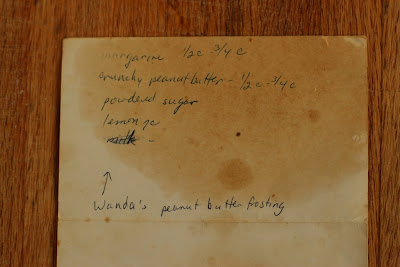 margarine 1/2 c - 3/4 c
crunchy peanut butter - 1/2 c - 3/4 c
powdered sugar
lemon
-
↑
Wanda's peanut butter frosting